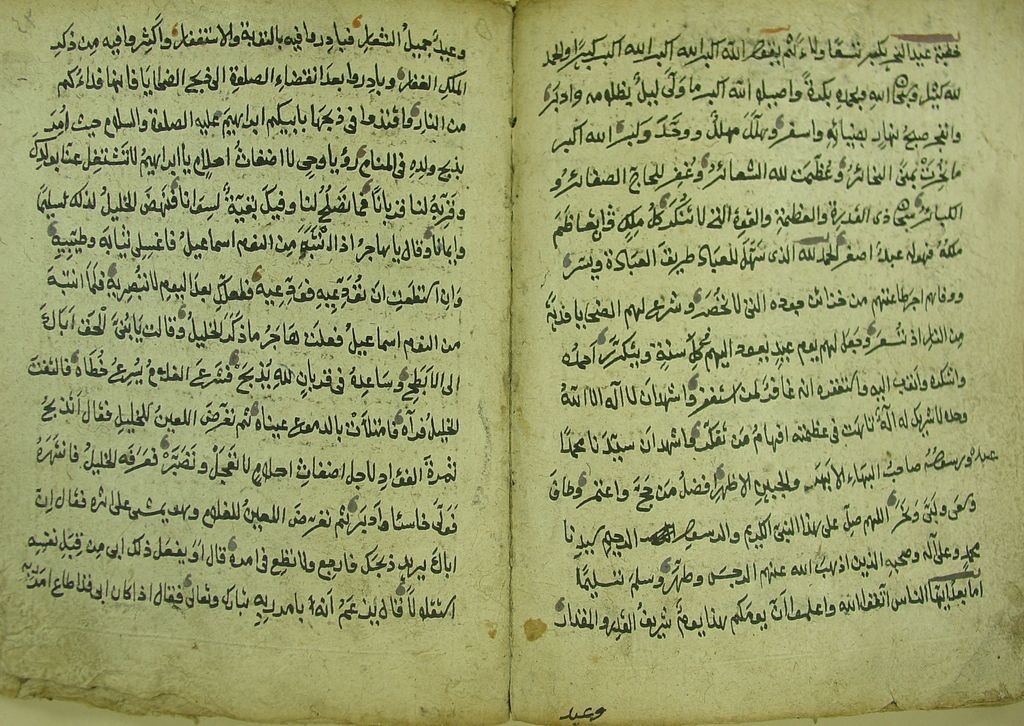 خطبة عيد النحر يكبر تسعا ولاء ثم يقول الله اكبر الله اكبر الله اكبر كبيرا والحمد
لله كثيرا وسبحان الله وبحمده بكرة واصيلا الله اكبر ما ولى ليل بظلامه وادبر
وانفجر صبح نهار بضيائه واسفر وهلل مهلل ووحد وكبر الله اكبر
ما نحرت بمنى النحائر وعظمت لله الشعائر وغفر للحاج الصغائر و
الكبائر سبحان ذى القدرة والعظمة والقوة التى لا تنكر كل ملك وان تعاظم
ملكه فهو له عبد اصغر الحمد لله الذى سهل للعباد طريق العبادة ويسر
ووفاهم اجر طاعتهم من خزائن جوده التى لا تحصر وشرع لهم الضحايا فدية
من النار اذ تسعر وجعل لهم يوم عيد يعود اليهم كل سنة ويتكرر احمده
واشكره واتوب اليه واستغفره انه غافر لمن استغفر واشهد ان لا اله الا الله
وحده لا شريك له اله تاهت فى عظمته افهام من تفكر واشهد ان سيدنا محمدا
عبده ورسوله صاحب البهاء الابهر والجبين الازهر افضل من حج واعتمر وطاف
وسعى ولبى ونحر اللهم صل على هذا النبى الكريم والرسول الرحيم سيدنا
محمد وعلى آله وصحبه الذين اذهب الله عنهم الرجس وطهر وسلم تسليما
اما بعد ايها الناس اتقوا الله واعلموا ان يومكم هذا يوم شريف القدر والمقدار
وعيد
وعيد جميل الشعار فبادروا فيه بالتوبة والاستغفار واكثروا فيه من ذكر
الملك الغفار وبادروا بعد انقضاء الصلوة الى ذبح الضحايا فانها فداءكم
من النار واقتدوا فى ذبحها بابيكم ابراهيم عليه الصلوة والسلام حيث امر
بذبح ولده فى المنام رؤيا وحى لا اضغاث احلام يا ابراهيم لا تشتغل عنا بولدك
وقربه لنا قربانا فما تصلح لنا وفيك بقية لسوانا فنهض الخليل لذلك تسليما
وايمانا وقال يا هاجر اذا انتبه من النوم اسماعيل فاغسلى ثيابه وطيبيه
وان استطعت ان تودعيه فودعيه فلعلك بعد اليوم لا تبصريه فلما انتبه
من النوم اسماعيل فعلت هاجر ما ذكر الخليل وقالت يا بنى الحق اباك
الى الابطح وساعده فى قربان لله يذبح فشرع الغلام يسرع خطاه فالتفت
الخليل فرآه فامتلات بالدموع عيناه ثم تعرض اللعين للخليل فقال اتذبح
ثمرة الفؤاد لاجل اضغاث احلام لا تعجل وتصبر فعرفه الخليل فانتهره
فولى خاسئا وادبر ثم تعرض اللعين للغلام وهو يمشى على اثره فقال ان
اباك يريد ذبحك فارجع ولا تطع فى امره قال او يفعل ذلك ابى من قبل نفسه
استقلولا قال ليزعم انه بامر ربه تبارك وتعالى فقال اذا كان ابى قد اطاع امر ربه